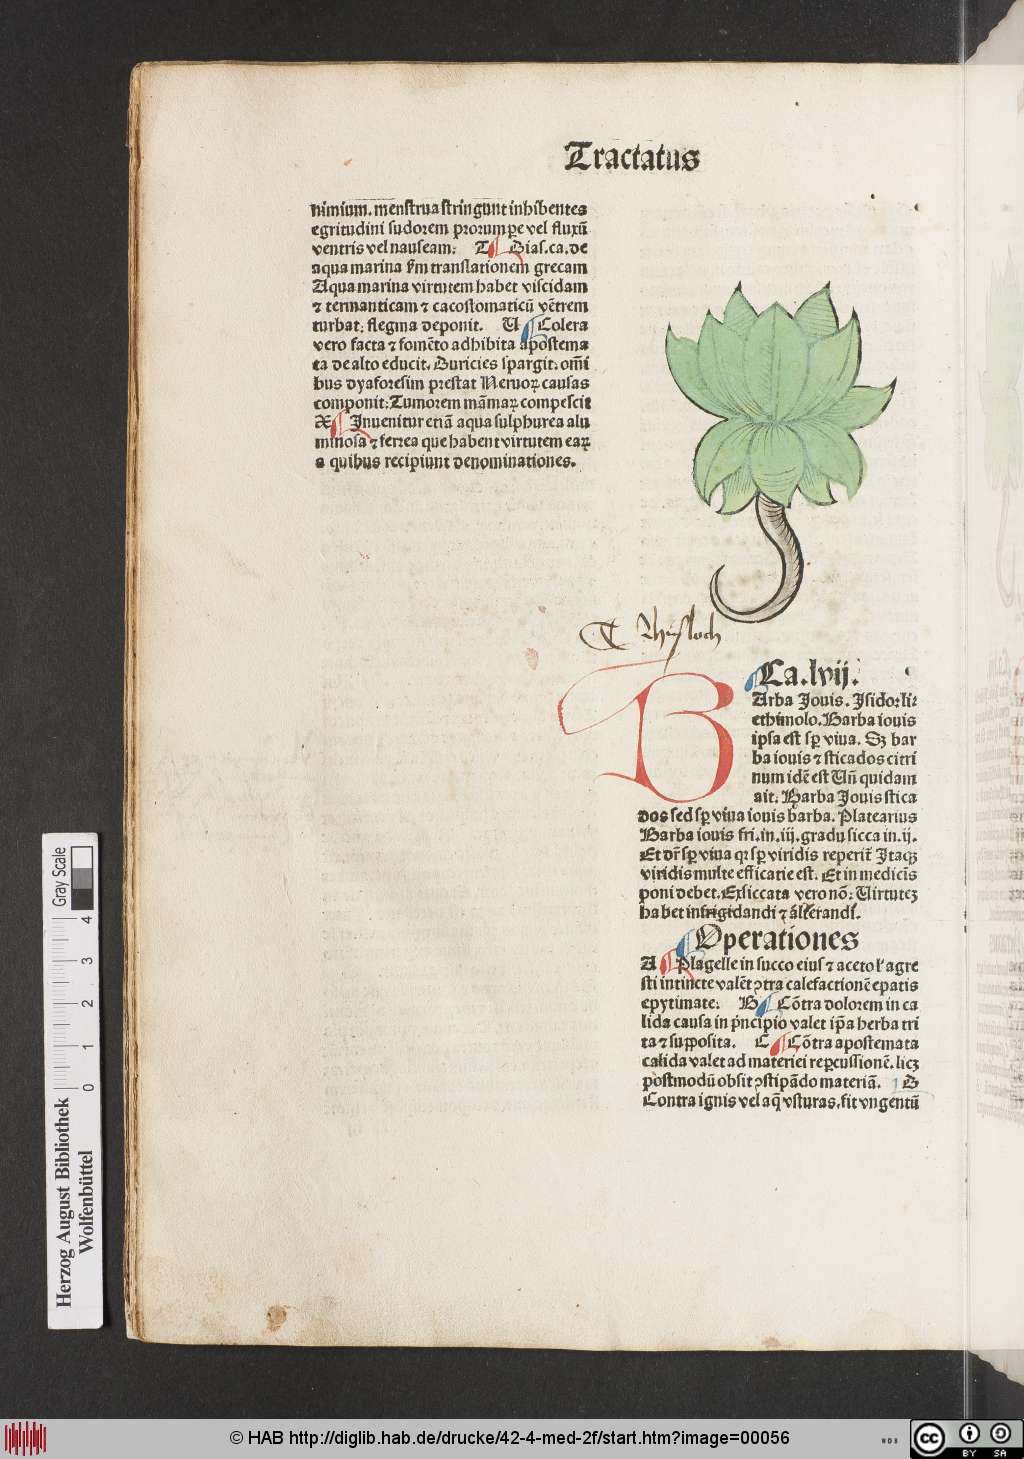 Tractatus
nimium. menstrua stringunt inhibentes
egritudini sudorem prorumpe vel fluxū
ventris vel nauseam: T Dias. ca. de
aqua marina translationem grecam
Aqua marina virtutem habet viscidam
⁊ termanticam ⁊ cacostomaticū vētrem
turbat: flegma deponit. U Colera
vero facta ⁊ fomēto adhibita apostema
ta de alto educit. Duricies spargit: om̄i
bus dyaforesim prestat Neruoꝝ causas
componit: Tumorem māmaꝝ compescit
X Inuenitur etiā aqua sulphurea alu
minosa ⁊ ferrea que habent virtutem eaꝝ
a quibus recipiunt denominationes.
Ca. lvij.
BArba Jouis. Isidor: li:
ethimolo. Barba iouis
ipsa est sp̄ viua. Sz bar
ba iouis ⁊ sticados citri
num idē est Un̄ quidam
ait: Barba Jouis stica
dos sed sp̄ viua iouis barba. Platearius
Barba iouis fri. in. iij. gradu sicca in. ij.
Et dr̄ sp̄ viua qꝛ sp̄ viridis reperit̄ Itaqꝫ
viridis multe efficatie est. Et in medicīs
poni debet. Exsiccata vero nō: Uirtutez
habet infrigidandi ⁊
Operationes
A Plagelle in succo eius ⁊ aceto ł agre
sti intincte valēt ꝯtra calefactionē epatis
epytimate: B Cōtra dolorem in ca
lida causa in p̄ncipio valet ip̄a herba tri
ta ⁊ supposita. C Cōtra apostemata
calida valet ad materiei reꝑcussionē. licꝫ
postmodū obsit ꝯstipādo materiā. D
Contra ignis vel aq̄ vsturas. fit vngentū
Gray Scale
4
3
2
1
0
Herzog August Bibliothek
Wolfenbüttel
© HAB http://diglib.hab.de/drucke/42-4-med-2f/start.htm?image=00056
WDB
cc
BY SA